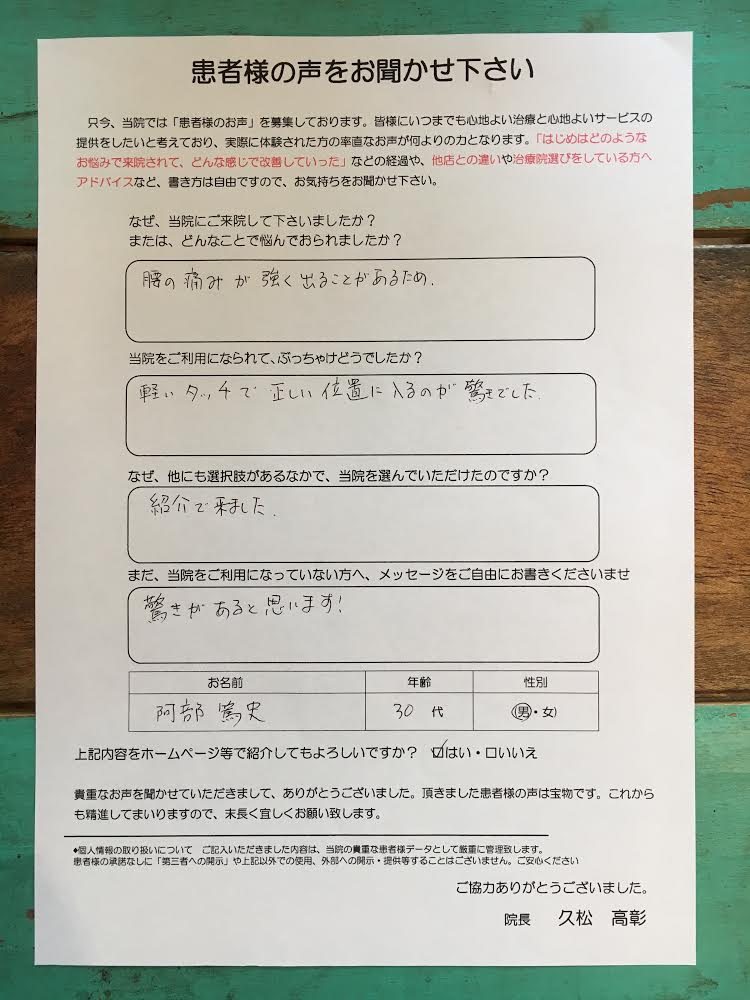 患者様の声をお聞かせ下さい
只今、当院では「患者様のお声」を募集しております。皆様にいつまでも心地よい治療と心地よいサービスの
提供をしたいと考えており、実際に体験された方の率直なお声が何よりの力となります。「はじめはどのような
お悩みで来院されて、どんな感じで改善していった」などの経過や、他店との違いや治療院選びをしている方へ
アドバイスなど、書き方は自由ですので、お気持ちをお聞かせ下さい。
なぜ、当院にご来院して下さいましたか？
または、どんなことで悩んでおられましたか？
腰の痛みが強く出ることがあるため.
当院をご利用になられて、ぶっちゃけどうでしたか？
軽いタッチで正しい位置に入るのが驚きでした.
なぜ、他にも選択肢があるなかで、当院を選んでいただけたのですか？
紹介で来ました.
まだ、当院をご利用になっていない方へ、メッセージをご自由にお書きくださいませ
驚きがあると思います!
お名前 年齢 性別
阿部 篤史 30 代 男・女
上記内容をホームページ等で紹介してもよろしいですか？ ☑はい・□いいえ
貴重なお声を聞かせていただきまして、ありがとうございました。頂きました患者様の声は宝物です。これから
も精進してまいりますので、末長く宜しくお願い致します。
◆個人情報の取り扱いについて ご記入いただきました内容は、当院の貴重な患者様データとして厳重に管理致します。
患者様の承諾なしに「第三者への開示」や上記以外での使用、外部への開示・提供等することはございません。ご安心ください
ご協力ありがとうございました。
院長 久松 高彰